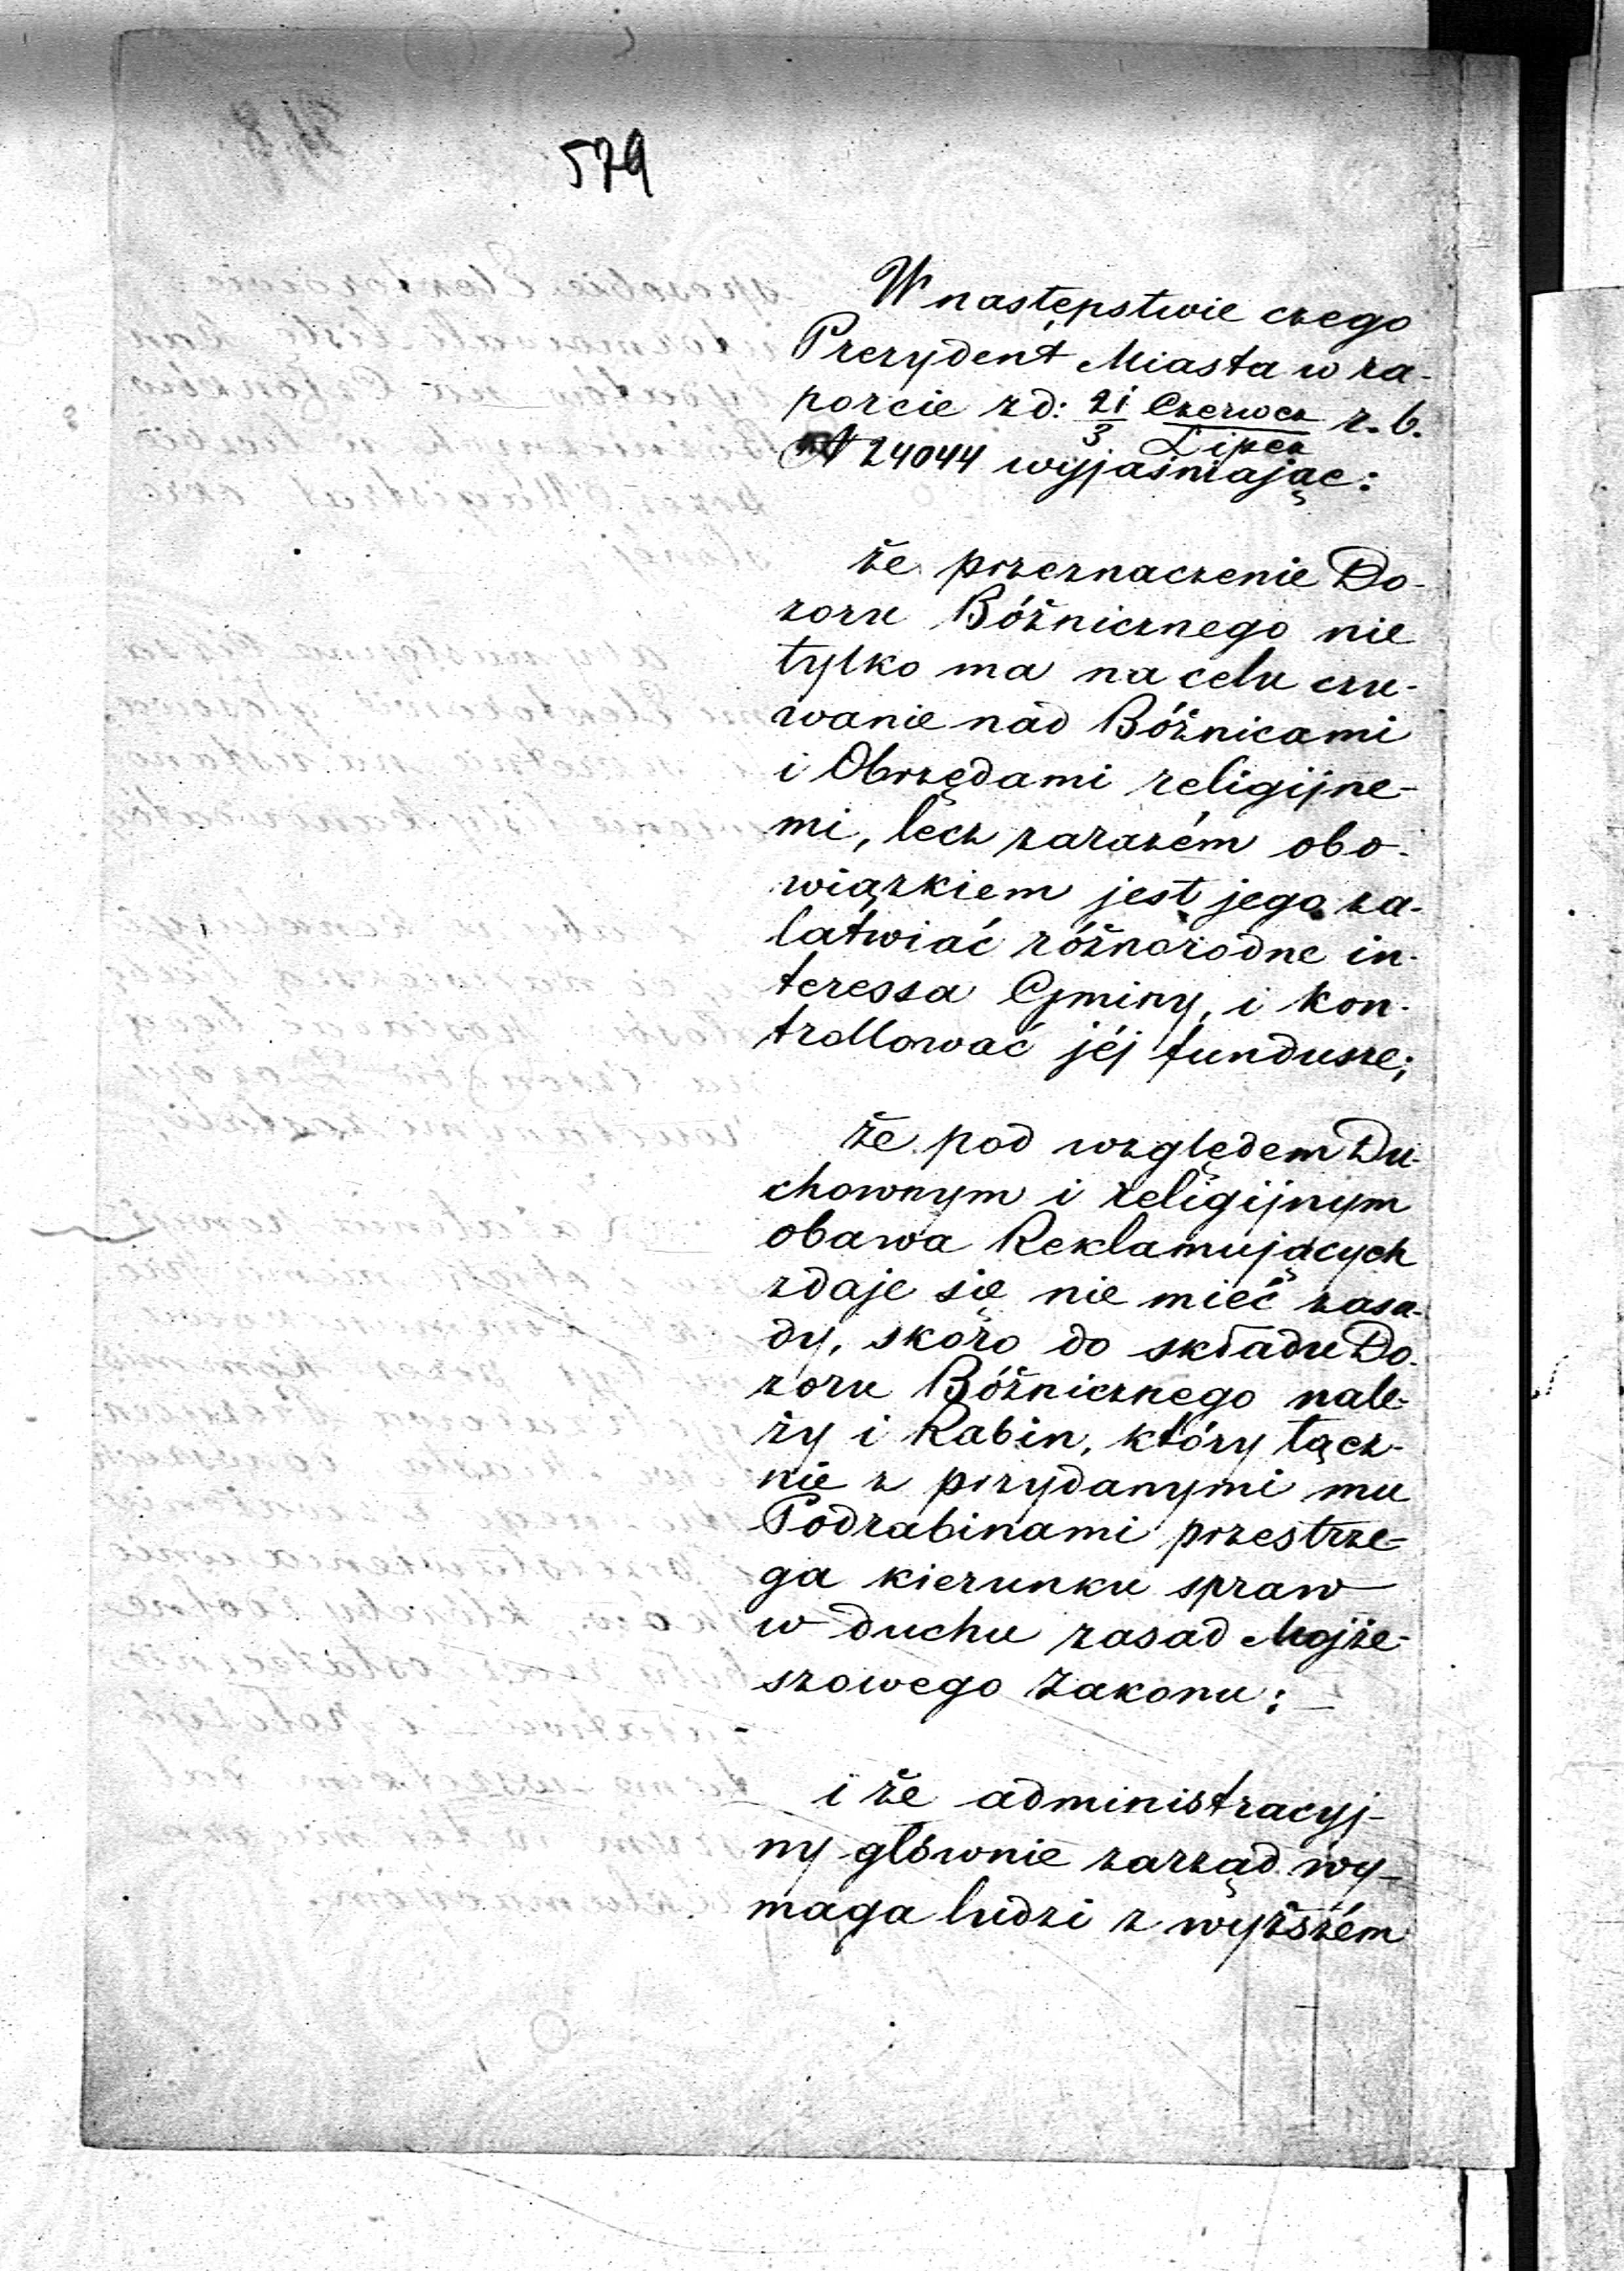 579
W następstwie czego
Prezydent Miasta w ra-
porcie z d: 21 Czerwca / 3 Lipca r. b.
N 24044 wyjaśniając:
że przeznaczenie Do-
zoru Bóżnicznego nie
tylko ma na celu czu-
wanie nad Bóżnicami
i Obrzędami religijne-
mi, lecz zarazém obo-
wiązkiem jest jego za-
łatwiać różnorodne in-
teressa Gminy, i kon-
trollować jéj fundusze;
że pod względem Du-
chownym i religijnym
obawa Reklamujących
zdaje się nie mieć zasa-
dy, skoro do składu Do-
zoru Bóżnicznego nale-
ży i Rabin, który łącz-
nie z przydanymi mu
Podrabinami przestrze-
ga kierunku spraw
w duchu zasad Mojże-
szowego Zakonu;
i że administracyj-
ny głównie zarząd wy-
maga ludzi z wyższém